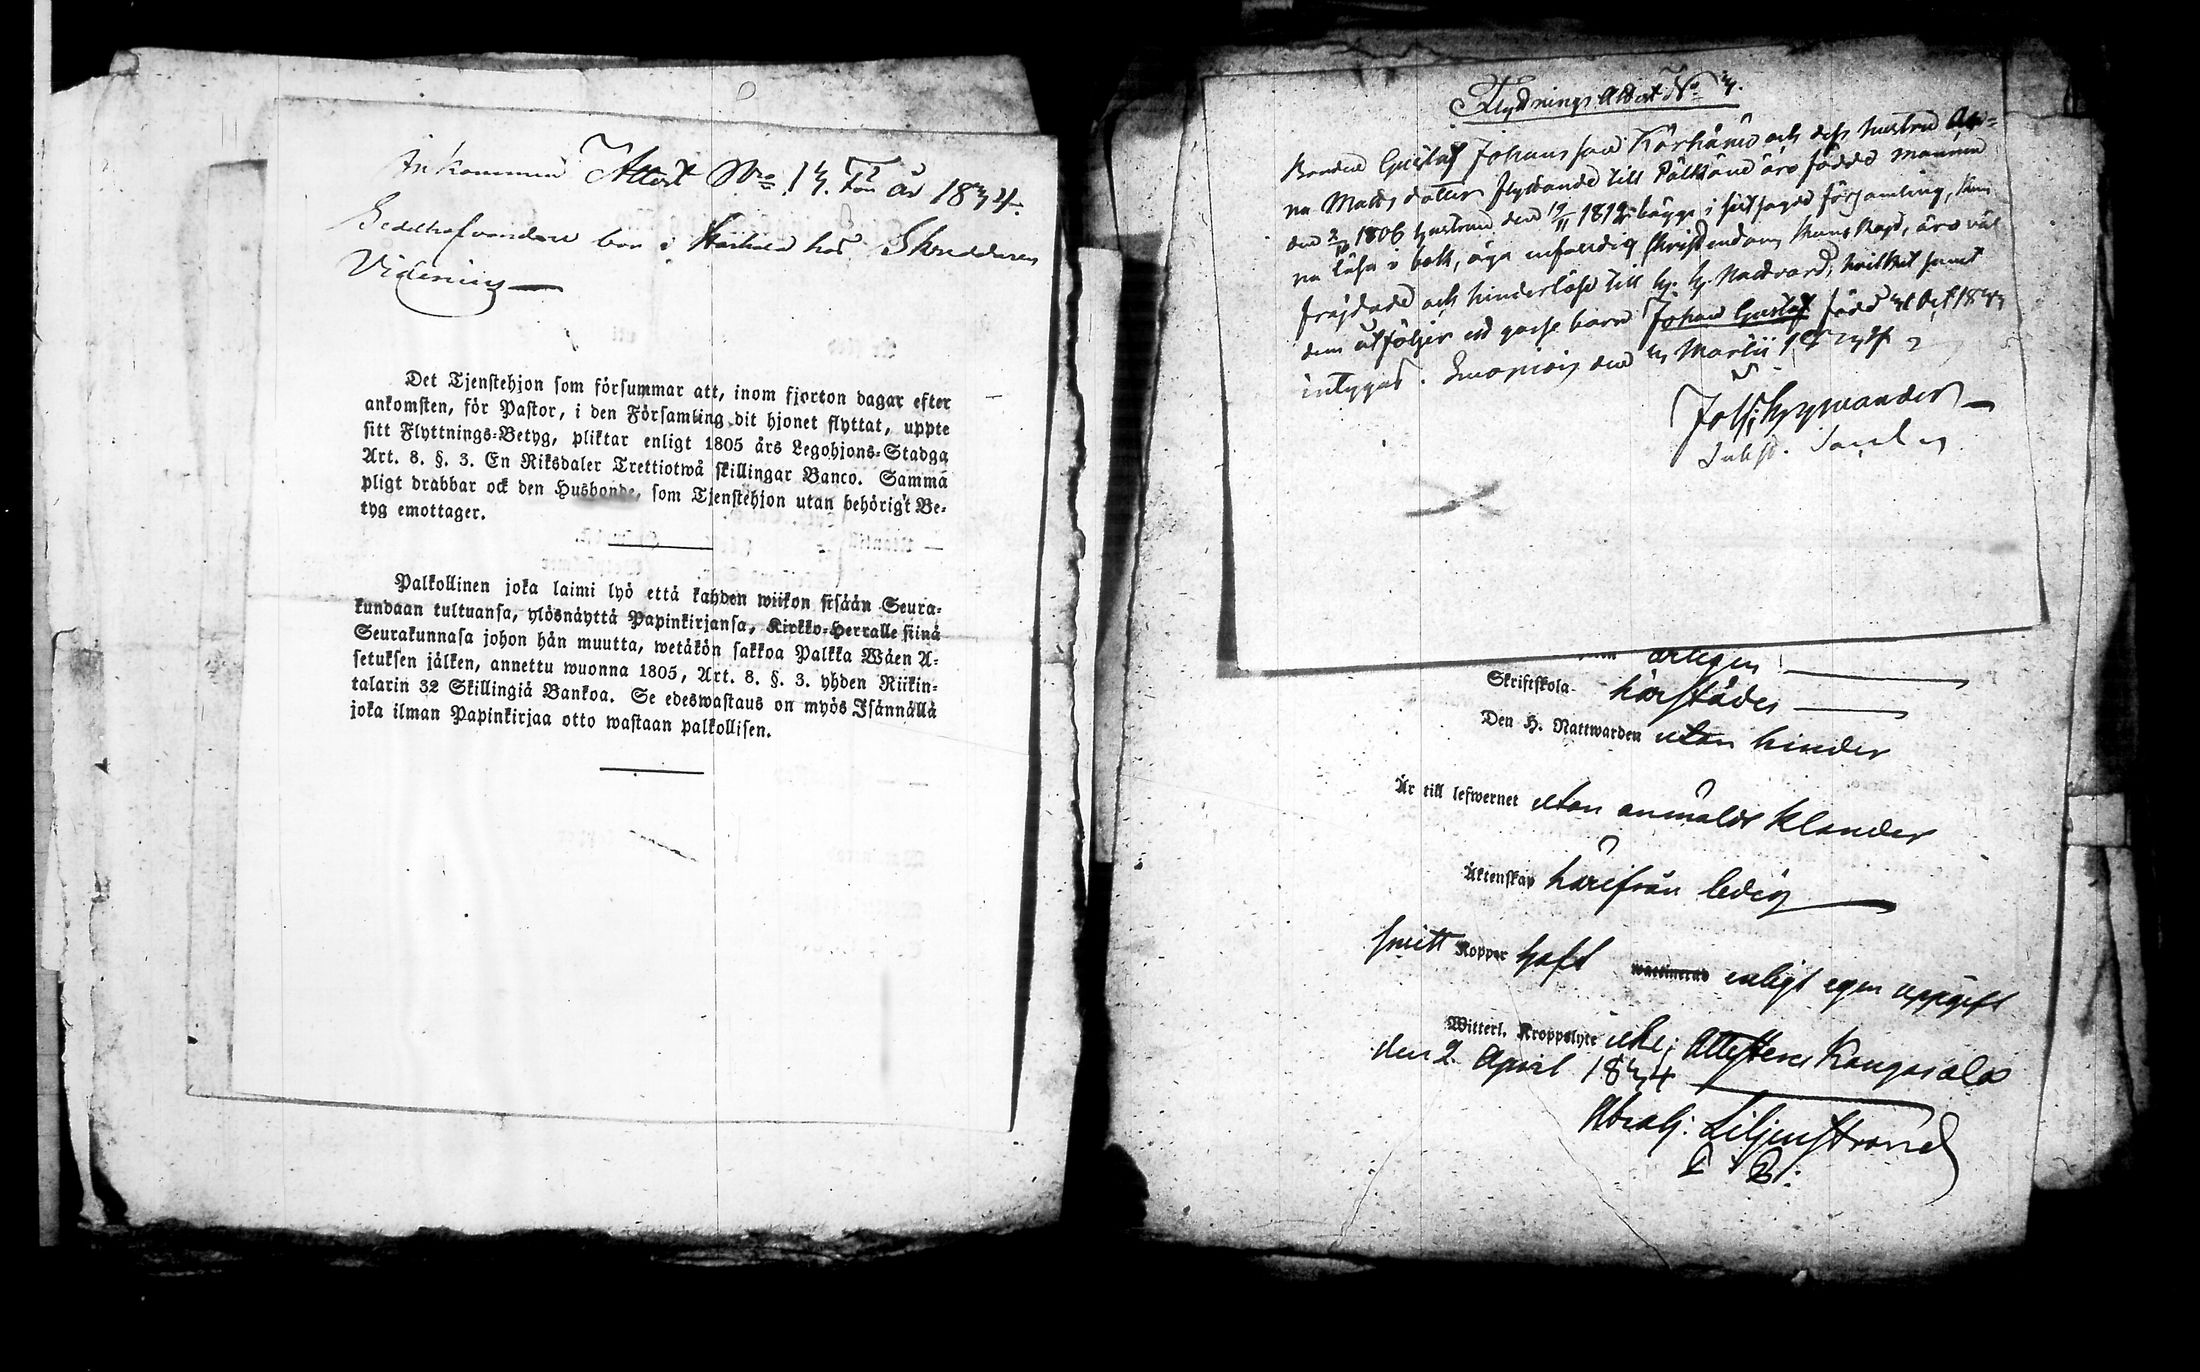 Ankommen Attest Nro 13. för år 1834.
bor i hos Skreddaren
Det Tjenstehjon som försummar att, inom fjorton dagar efter
ankomsten, för Pastor, i den Församling dit hjonet flyttat, uppte
sitt Flyttnings-Betyg, pliktar enligt 1805 års Legohjons-Stadga
Art. 8. §. 3. En Riksdaler Trettiotwå skillingar Banco. Samma
pligt drabbar ock den Husbonde, som Tjenstehjon utan behörigt Be-
tyg emottager.
Palkollinen joka laimi lyö että kahden wiikon sisään Seura-
kundaan tultuansa, ylösnäyttä Papinkirjansa, Kirkko-Herralle siinä
Seurakunnasa johon hän muutta, wetäkön sakkoa Palkka Wäen A-
setuksen jälken, annettu wuonna 1805, Art. 8. §. 3. yhden Riikin-
talarin 32 Skillingiä Bankoa. Se edeswastaus on myös Isännällä
joka ilman Papinkirjaa otto wastaan palkollisen.
Flyttnings Attest No 3.
Bonden Gustaf Johansson och dess hustru An-
na Mattsdotter flyttande till Pälkäne äro födde mannen
den 1806 hustrun den 19/11 1812 bägge i församling, kun
na läsa i bok, äga christendoms kunskap, äro väl
frejdade och hinderlöse till h. h. Nattvard, hvilket samt
dem åtföljer ett gosse barn Johan Gustaf född Oct 1833
intygas. den Martii 1834
årligen
Skriftskola härstädes
Den H. Nattwarden utan hinder
Är till lefwernet utan anmäldt klander
Äktenskap härifrån ledig
Koppor haft enligt egen uppgift
Witterl. Kroppslyte icke; Attesteras Kangasala
den 2 April 1834
Abrah. Liljenstrand